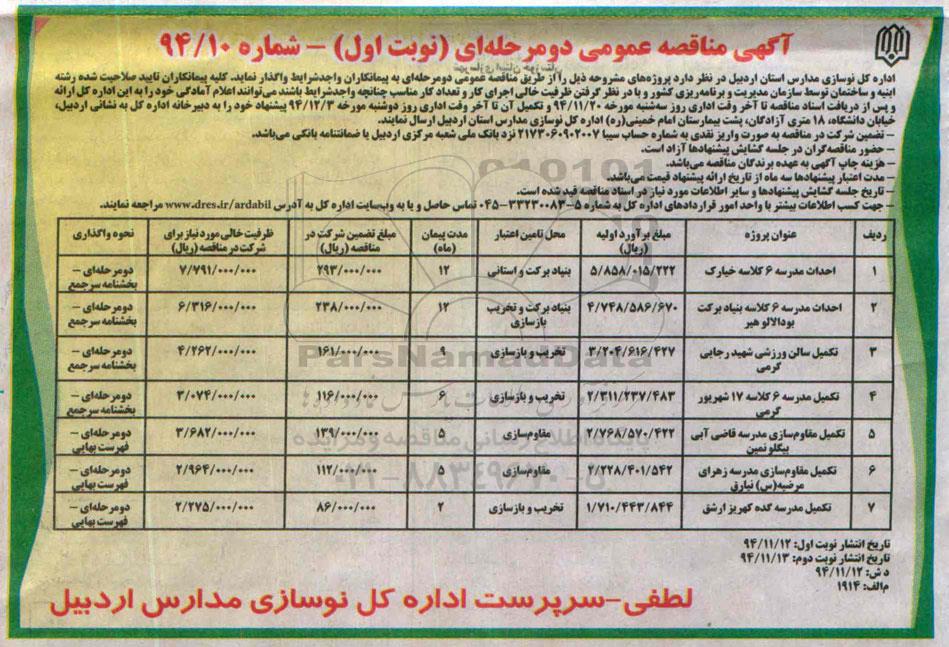 آگهی مناقصه عمومی دومرحله‌ای (نوبت اول) – شماره ۹۴/۱۰
اداره کل نوسازی مدارس استان اردبیل در نظر دارد پروژه‌های مشروحه ذیل را از طریق مناقصه عمومی دومرحله‌ای به پیمانکاران واجدشرایط واگذار نماید. کلیه پیمانکاران تایید صلاحیت شده رشته
ابنیه و ساختمان توسط سازمان مدیریت و برنامه‌ریزی کشور و با در نظر گرفتن ظرفیت خالی اجرای کار و تعداد کار مناسب چنانچه واجدشرایط باشند می‌توانند اعلام آمادگی خود را به این اداره کل ارائه
و پس از دریافت اسناد مناقصه تا آخر وقت اداری روز سه‌شنبه مورخه ۹۴/۱۱/۲۰ و تکمیل آن تا آخر وقت اداری روز دوشنبه مورخه ۹۴/۱۲/۳ پیشنهاد خود را به دبیرخانه اداره کل به نشانی اردبیل،
خیابان دانشگاه، ۱۸ متری آزادگان، پشت بیمارستان امام خمینی(ره) اداره کل نوسازی مدارس استان اردبیل ارسال نمایند.
– تضمین شرکت در مناقصه به صورت واریز نقدی به شماره حساب سیبا ۲۱۷۳۰۶۰۹۰۲۰۰۷ نزد بانک ملی شعبه مرکزی اردبیل یا ضمانتنامه بانکی می‌باشد.
– حضور مناقصه‌گران در جلسه گشایش پیشنهادها آزاد است.
– هزینه چاپ آگهی به عهده برندگان مناقصه می‌باشد.
– مدت اعتبار پیشنهادها سه ماه از تاریخ ارائه پیشنهاد قیمت می‌باشد.
– تاریخ جلسه گشایش پیشنهادها و سایر اطلاعات مورد نیاز در اسناد مناقصه قید شده است.
– جهت کسب اطلاعات بیشتر با واحد امور قراردادهای اداره کل به شماره ۵-۳۳۲۳۰۰۸۳-۰۴۵ تماس حاصل و یا به وب‌سایت اداره کل به آدرس www.dres.ir/ardabil مراجعه نمایند.
ردیف عنوان پروژه مبلغ برآورد اولیه (ریال) محل تامین اعتبار مدت پیمان (ماه) مبلغ تضمین شرکت در مناقصه (ریال) ظرفیت خالی مورد نیاز برای شرکت در مناقصه (ریال) نحوه واگذاری
۱ احداث مدرسه ۶ کلاسه خیارک ۵/۸۵۸/۰۱۵/۲۲۲ بنیاد برکت و استانی ۱۲ ۲۹۳/۰۰۰/۰۰۰ ۷/۷۹۱/۰۰۰/۰۰۰ دومرحله‌ای – بخشنامه سرجمع
۲ احداث مدرسه ۶ کلاسه بنیاد برکت بودالالو هیر ۴/۷۴۸/۵۸۶/۶۷۰ بنیاد برکت و تخریب بازسازی ۱۲ ۲۳۸/۰۰۰/۰۰۰ ۶/۳۱۶/۰۰۰/۰۰۰ دومرحله‌ای – بخشنامه سرجمع
۳ تکمیل سالن ورزشی شهید رجایی گرمی ۳/۲۰۴/۶۱۶/۴۲۷ تخریب و بازسازی ۹ ۱۶۱/۰۰۰/۰۰۰ ۴/۲۶۲/۰۰۰/۰۰۰ دومرحله‌ای – بخشنامه سرجمع
۴ تکمیل مدرسه ۶ کلاسه ۱۷ شهریور گرمی ۲/۳۱۱/۲۳۷/۴۸۳ تخریب و بازسازی ۶ ۱۱۶/۰۰۰/۰۰۰ ۳/۰۷۴/۰۰۰/۰۰۰ دومرحله‌ای – بخشنامه سرجمع
۵ تکمیل مقاوم‌سازی مدرسه قاضی آبی بیگلو نمین ۲/۷۶۸/۵۷۰/۴۲۲ مقاوم‌سازی ۵ ۱۳۹/۰۰۰/۰۰۰ ۳/۶۸۲/۰۰۰/۰۰۰ دومرحله‌ای – فهرست بهایی
۶ تکمیل مقاوم‌سازی مدرسه زهرای مرضیه(س) نیارق ۲/۲۲۸/۴۰۱/۵۴۲ مقاوم‌سازی ۵ ۱۱۲/۰۰۰/۰۰۰ ۲/۹۶۴/۰۰۰/۰۰۰ دومرحله‌ای – فهرست بهایی
۷ تکمیل مدرسه کده کهریز ارشق ۱/۷۱۰/۴۴۳/۸۴۴ تخریب و بازسازی ۲ ۸۶/۰۰۰/۰۰۰ ۲/۲۷۵/۰۰۰/۰۰۰ دومرحله‌ای – فهرست بهایی
ParsNamadData
پایگاه اطلاع رسانی مناقصه و مزایده
۰۲۱-۸۸۳۴۹۶۷۰-۵
تاریخ انتشار نوبت اول: ۹۴/۱۱/۱۲
تاریخ انتشار نوبت دوم: ۹۴/۱۱/۱۳
د ش: ۹۴/۱۱/۱۲
م‌الف: ۱۹۱۴
لطفی-سرپرست اداره کل نوسازی مدارس اردبیل